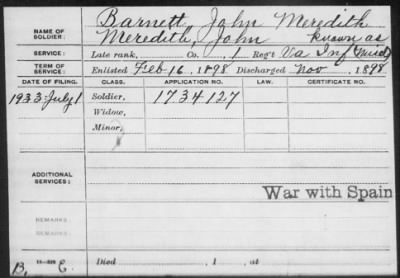 NAME OF SOLDIER: Barnett, John Meredith
Meredith, John known as
SERVICE: Late rank, Co. , 1 Reg't Va Inf
TERM OF SERVICE: Enlisted Feb 16, 1898 Discharged Nov , 1898
DATE OF FILING. CLASS. APPLICATION NO. LAW. CERTIFICATE NO.
1933 July 1 Soldier, 1734127
Widow,
Minor,
ADDITIONAL SERVICES:
War with Spain
REMARKS
REMARKS
Died , 1 , at
B. C.